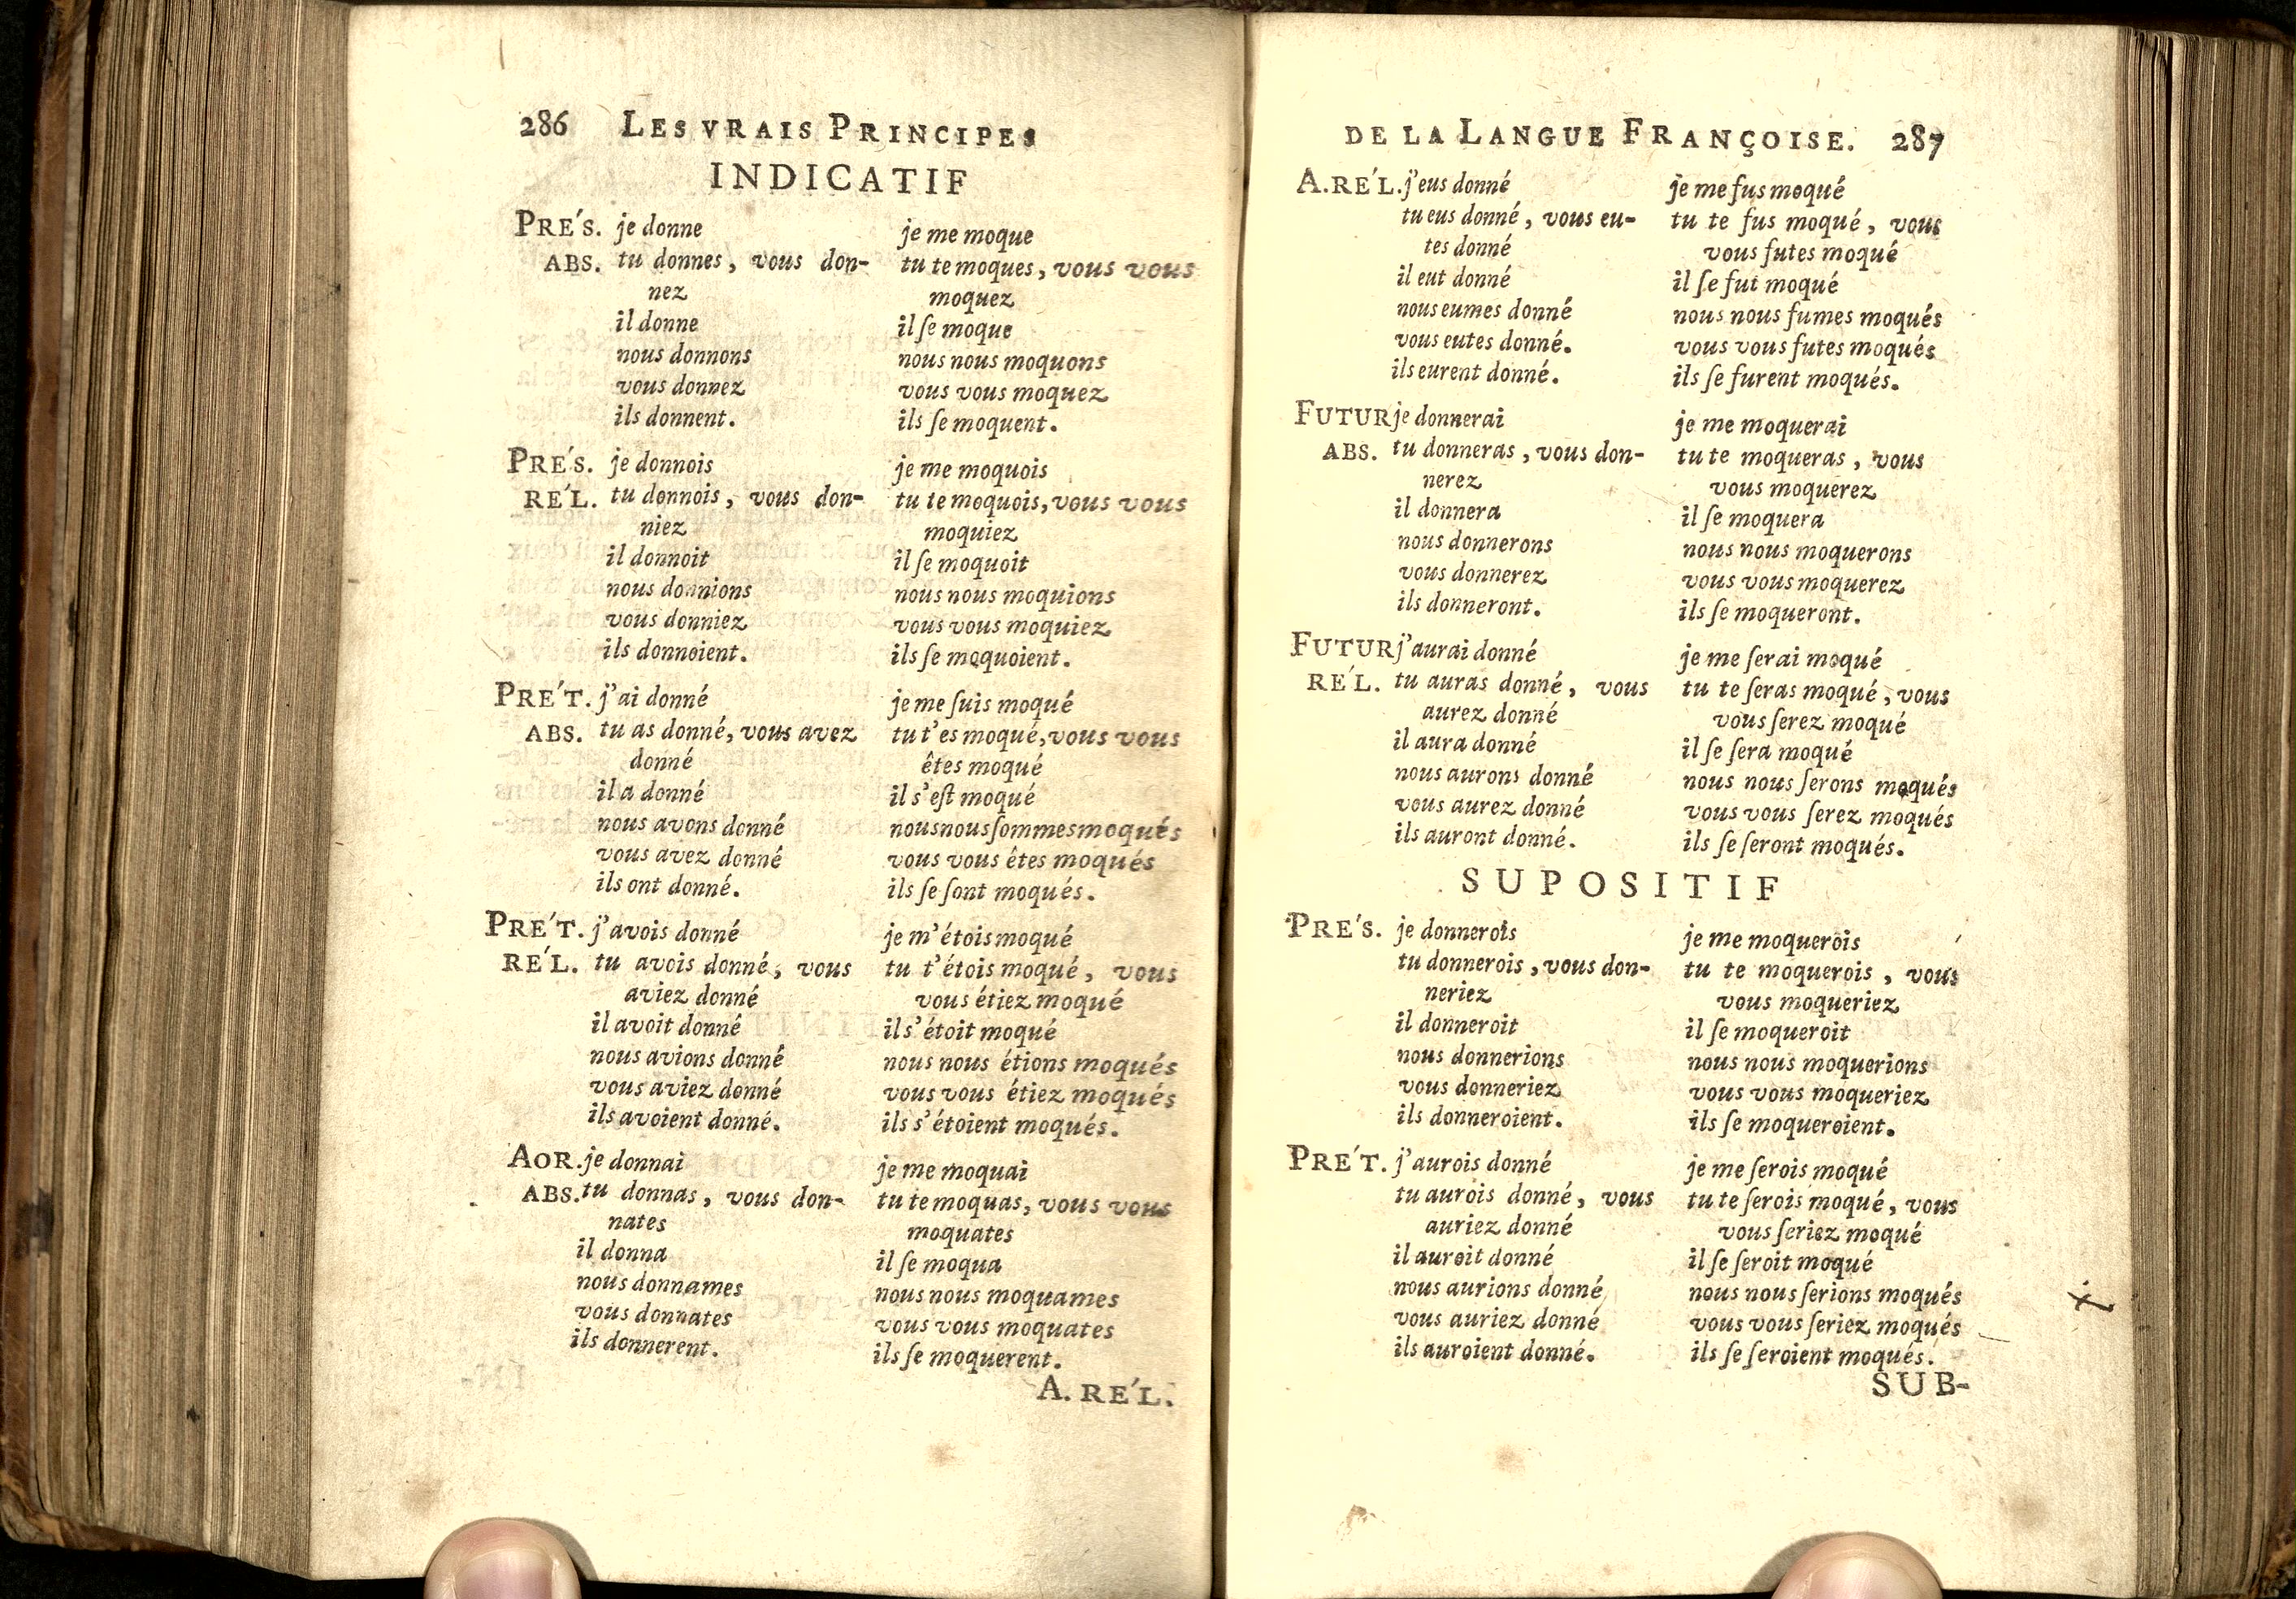 286 LES VRAIS PRINCIPES
INDICATIF
PRE´S. je donne je me moque
ABS. tu donnes, vous don- tu te moques, vous vous
nez moquez
il donne il ſe moque
nous donnons nous nous moquons
vous donnez vous vous moquez
ils donnent. ils ſe moquent.
PRE´S. je donnois je me moquois
RE´L. tu donnois, vous don- tu te moquois, vous vous
niez moquiez
il donnoit il ſe moquoit
nous donnions nous nous moquions
vous donniez vous vous moquiez
ils donnoient. ils ſe moquoient.
PRE´T. j'ai donné je me ſuis moqué
ABS. tu as donné, vous avez tu t'es moqué, vous vous
donné êtes moqué
il a donné il s'eſt moqué
nous avons donné nous nous ſommes moqués
vous avez donné vous vous êtes moqués
ils ont donné. ils ſe ſont moqués.
PRE´T. j'avois donné je m'étois moqué
RE´L. tu avois donné, vous tu t'étois moqué, vous
aviez donné vous étiez moqué
il avoit donné il s'étoit moqué
nous avions donné nous nous étions moqués
vous aviez donné vous vous étiez moqués
ils avoient donné. ils s'étoient moqués.
AOR. je donnai je me moquai
ABS. tu donnas, vous don- tu te moquas, vous vous
nates moquates
il donna il ſe moqua
nous donnames nous nous moquames
vous donnates vous vous moquates
ils donnerent. ils ſe moquerent.
A. RE´L.
DE LA LANGUE FRANÇOISE. 287
A.RE´L. j'eus donné je me fus moqué
tu eus donné, vous eu- tu te fus moqué, vous
tes donné vous futes moqué
il eut donné il ſe fut moqué
nous eumes donné nous nous fumes moqués
vous eutes donné. vous vous futes moqués
ils eurent donné. ils ſe furent moqués.
FUTUR je donnerai je me moquerai
ABS. tu donneras, vous don- tu te moqueras, vous
nerez vous moquerez
il donnera il ſe moquera
nous donnerons nous nous moquerons
vous donnerez vous vous moquerez
ils donneront. ils ſe moqueront.
FUTUR j'aurai donné je me ſerai moqué
RE´L. tu auras donné, vous tu te ſeras moqué, vous
aurez donné vous ſerez moqué
il aura donné il ſe ſera moqué
nous aurons donné nous nous ſerons moqués
vous aurez donné vous vous ſerez moqués
ils auront donné. ils ſe ſeront moqués.
SUPOSITIF
PRE´S. je donnerois je me moquerois
tu donnerois, vous don- tu te moquerois, vous
neriez vous moqueriez
il donneroit il ſe moqueroit
nous donnerions nous nous moquerions
vous donneriez vous vous moqueriez
ils donneroient. ils ſe moqueroient.
PRE´T. j'aurois donné je me ſerois moqué
tu aurois donné, vous tu te ſerois moqué, vous
auriez donné vous ſeriez moqué
il auroit donné il ſe ſeroit moqué
nous aurions donné, nous nous ſerions moqués
vous auriez donné vous vous ſeriez moqués
ils auroient donné. ils ſe ſeroient moqués.
SUB-